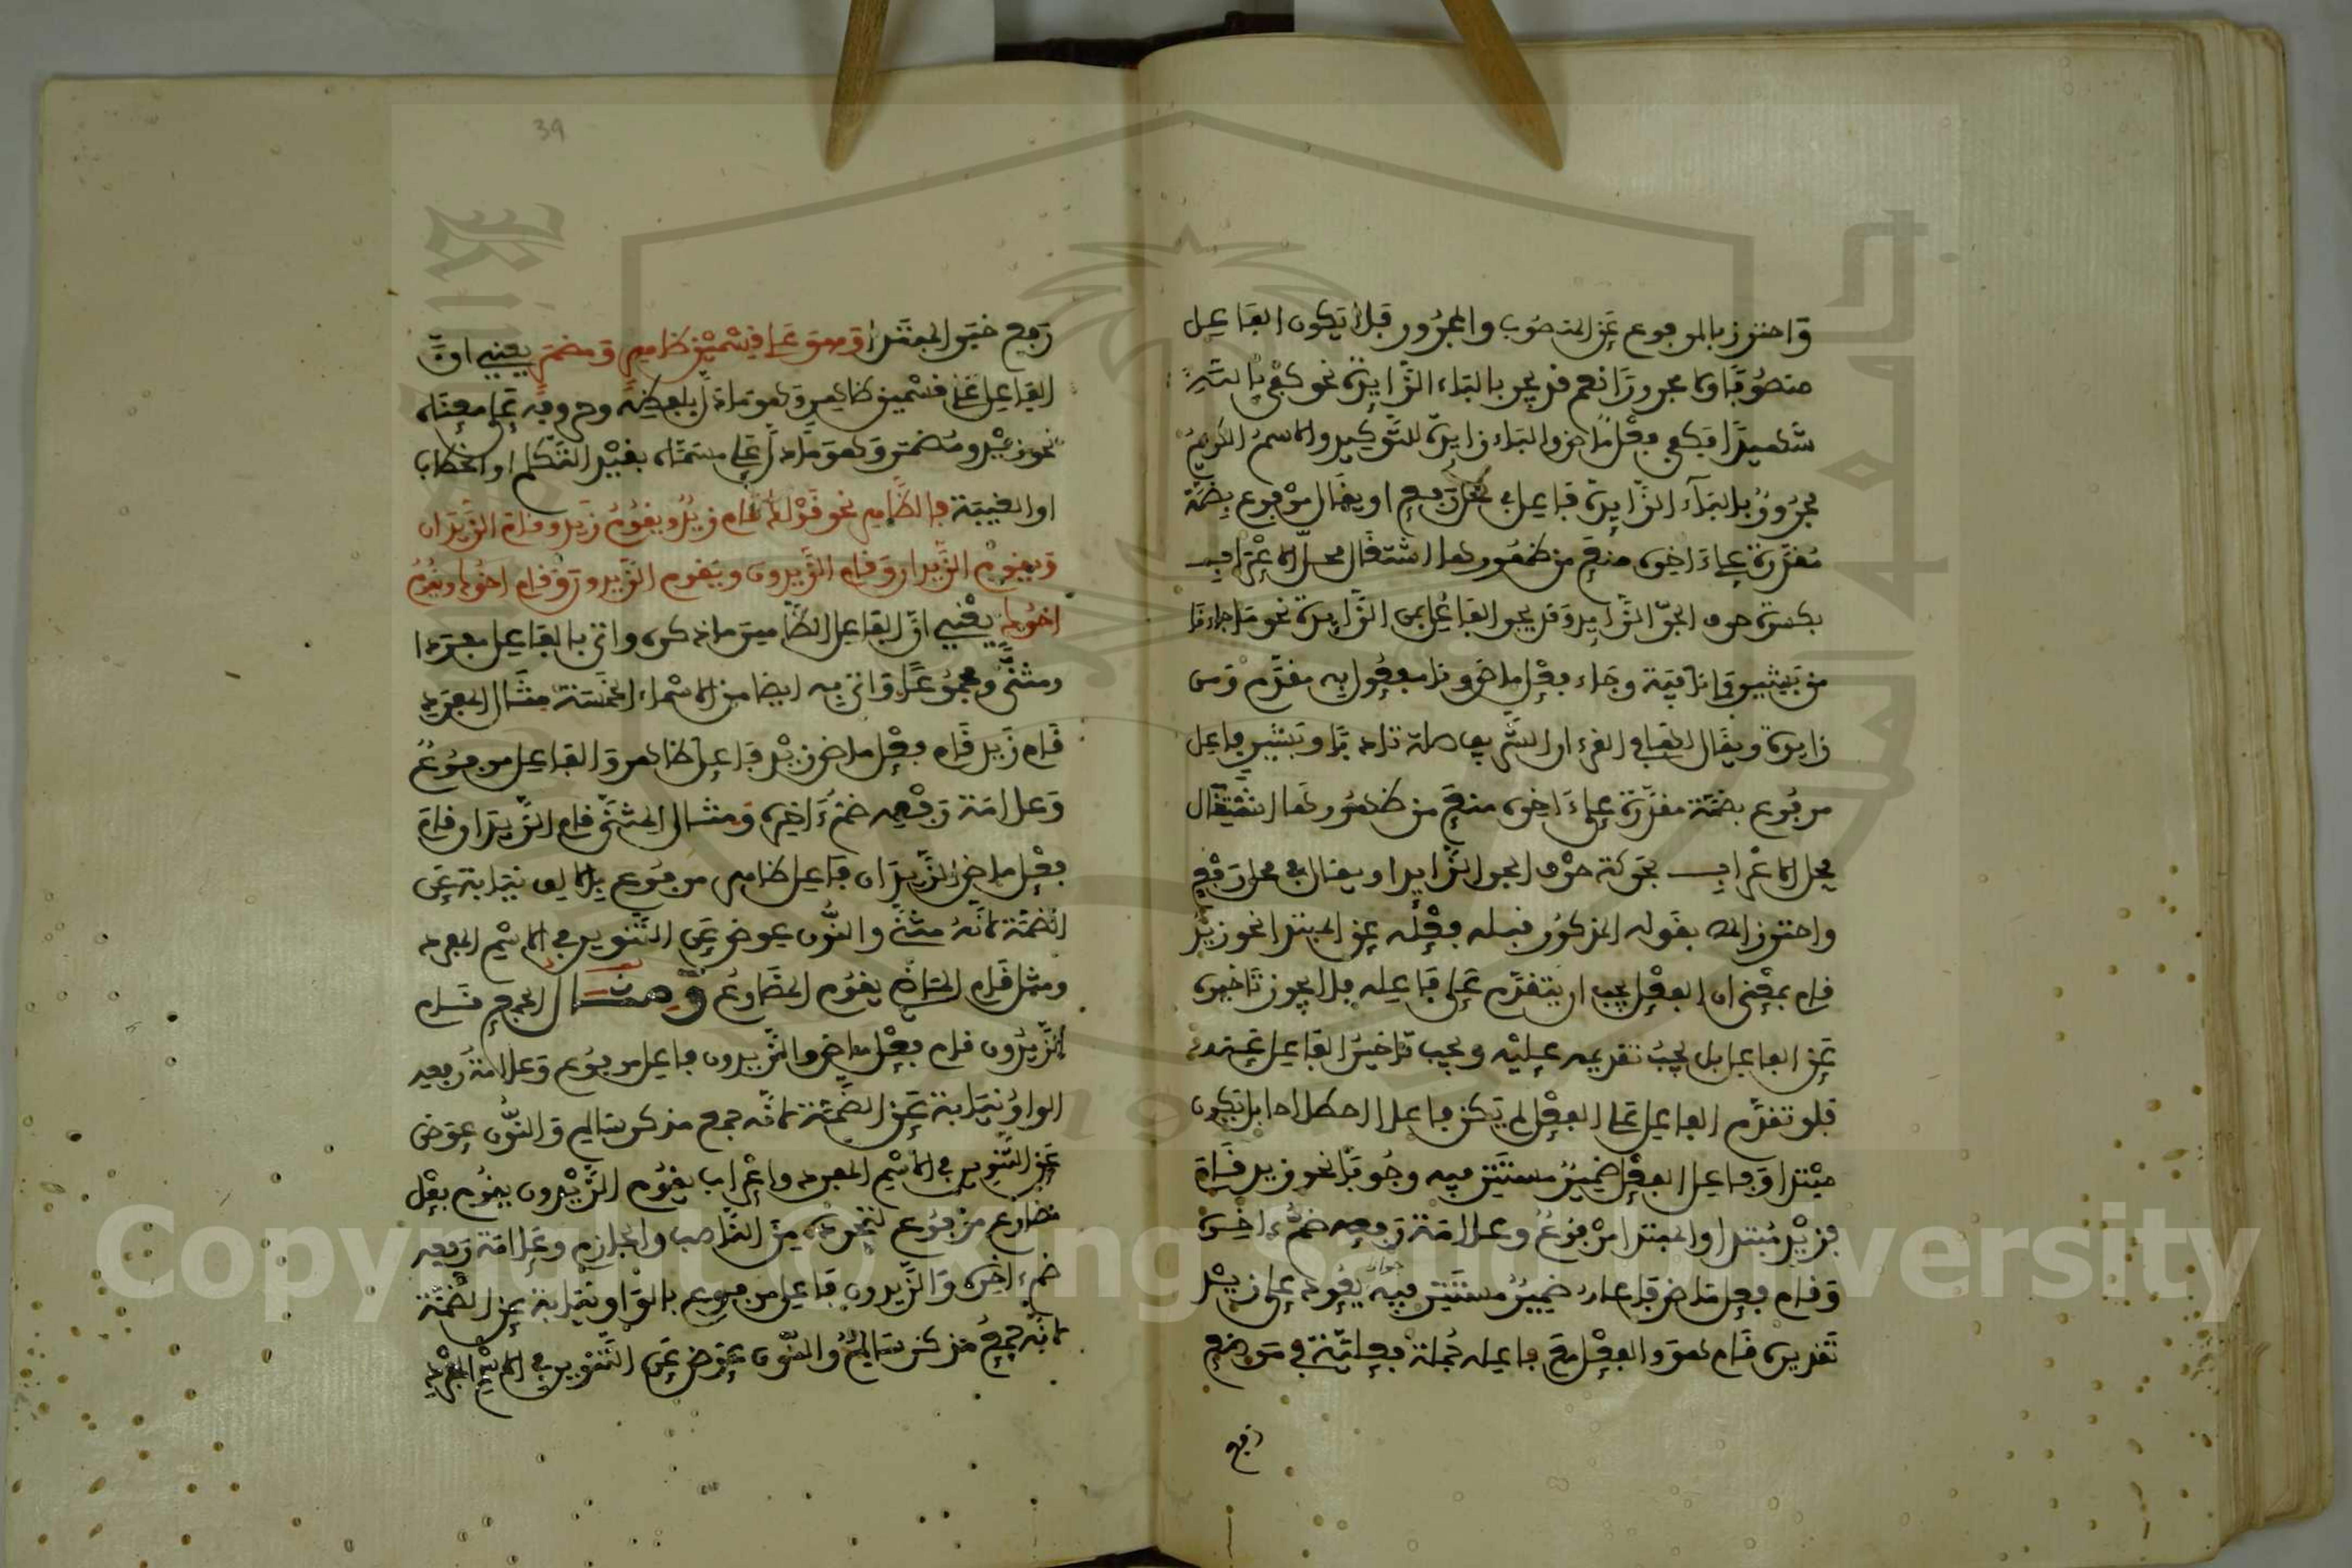 واحترز بالمرفوع عن المنصوب والمجرور فلا يكون الفاعل
منصوبا ولا مجرورا نعم قد يجر بالباء الزايدة نحو كفى بالله
شهيدا فكفى فعل ماض والباء زايدة للتوكيد والاسم الكريم
مجرور بالباء الزايدة فاعل في محل رفع او يقال مرفوع بضمة
مقدرة على ءاخره منع من ظهورها اشتغال محل الاعراب
بكسرة حرف الجر الزايد وقد يجر الفاعل بمن الزايدة نحو ما جاءنا
من بشير فما نافية وجاء فعل ماض ونا مفعول به مقدم ومن
زايدة ويقال
مرفوع بضمة مقدرة على ءاخره منع من ظهورها اشتغال
محل الاعراب بحركة حرف الجر الزايد او يقال في محل رفع
واحترز بقوله المذكور قبله فعله عن المبتدا نحو زيد
قام بمعنى ان الفعل يجب ان يتقدم على فاعله فلا يجوز تاخيره
عن الفاعل بل يجب تقديمه عليه ويجب تاخير الفاعل عنه
فلو تقدم الفاعل على الفعل لم يكن فاعلا اصطلاحا بل يكون
مبتدا وفاعل الفعل ضمير مستتر فيه وجوبا نحو زيد قام
فزيد مبتدا والمبتدا مرفوع وعلامة رفعه ضم ءاخره
وقام فعل ماض فاعله ضمير مستتر فيه جوازا يعود على زيد
تقديره قام هو والفعل مع فاعله جملة فعلية في موضع
رفع
39
رفع خبر المبتدا وهو على قسمين ظاهر ومضمر يعني ان
الفاعل على قسمين ظاهر وهو ما دل بلفظه وحروفه على معناه
نحو زيد ومضمر وهو ما دل على مسماه بقيد التكلم او الخطاب
او الغيبة فالظاهر نحو قولك قام زيد ويقوم زيد وقام الزيدان
ويقوم الزيدان وقام الزيدون ويقوم الزيدون وقام اخوك ويقوم
اخوك يعني ان الفاعل الظاهر ما ذكره واتى بالفاعل مفردا
ومثنى ومجموعا واتى به ايضا من الاسماء الخمسة مثال المفرد
قام زيد قام فعل ماض زيد فاعل ظاهر والفاعل مرفوع
وعلامة رفعه ضم ءاخره ومثال المثنى قام الزيدان قام
فعل ماض الزيدان فاعل ظاهر مرفوع بالالف نيابة عن
الضمة لانه مثنى والنون عوض عن التنوين في الاسم المفرد
ومثل قام الماضي يقوم المضارع ومثال الجمع قام
الزيدون قام فعل ماض والزيدون فاعل مرفوع وعلامة رفعه
الواو نيابة عن الضمة لانه جمع مذكر سالم والنون عوض
عن التنوين في الاسم المفرد واعراب يقوم الزيدون يقوم فعل
مضارع مرفوع لتجرده من الناصب والجازم وعلامة رفعه
ضم ءاخره والزيدون فاعل مرفوع بالواو نيابة عن الضمة
لانه جمع مذكر سالم والنون عوض عن التنوين في الاسم المفرد
Copyright © King Saud University